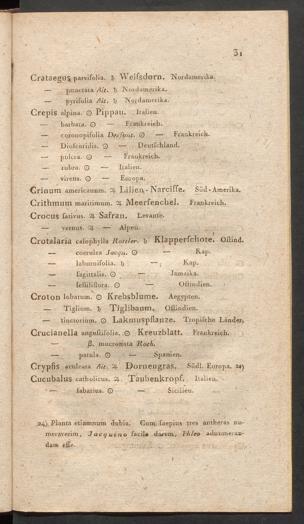 31
Crataegus parvifolia. ♄ Weifsdorn. Nordamerika.
— punctata Ait. ♄ Nordamerika.
— pyrifolia Ait. ♄ Nordamerika.
Crepis alpina. ⊙ Pippau. Italien.
— barbata. ⊙ — Frankreich.
— coronopifolia Desfont. ⊙ — Frankreich.
— Dioscoridis. ⊙ — Deutschland.
— pulcra. ⊙ — Frankreich.
— rubra. ⊙ — Italien.
— virens. ⊙ — Europa.
Crinum americanum. ♃ Lilien-Narcisse. Süd-Amerika.
Crithmum maritimum. ♃ Meerfenchel. Frankreich.
Crocus sativus. ♃ Safran. Levante.
— vernus. ♃ — Alpen.
Crotalaria cafophylla Rottler. ♄ Klapperschote. Ostind.
— coerulea Jacqu. ⊙ — Kap.
— laburnifolia. ♄ — Kap.
— sagittalis. ⊙ — Jamaika.
— sessiliflora. ⊙ — Ostindien.
Croton lobatum. ⊙ Krebsblume. Aegypten.
— Tiglium. ♄ Tiglibaum. Ostindien.
— tinctorium. ⊙ Lakmuspflanze. Tropische Länder.
Crucianella angustifolia. ⊙ Kreuzblatt. Frankreich.
— β. mucronata Roth.
— patula. ⊙ — Spanien.
Crypsis aculeata Ait. ♃ Dornengras. Südl. Europa. 24)
Cucubalus catholicus. ♃ Taubenkropf. Italien.
— fabarius. ⊙ — Sicilien.
24) Planta etiamnum dubia. Cum saepius tres antheras nu-
meraverim, Jacquino facile darem, Phleo adnumeran-
dam esse.